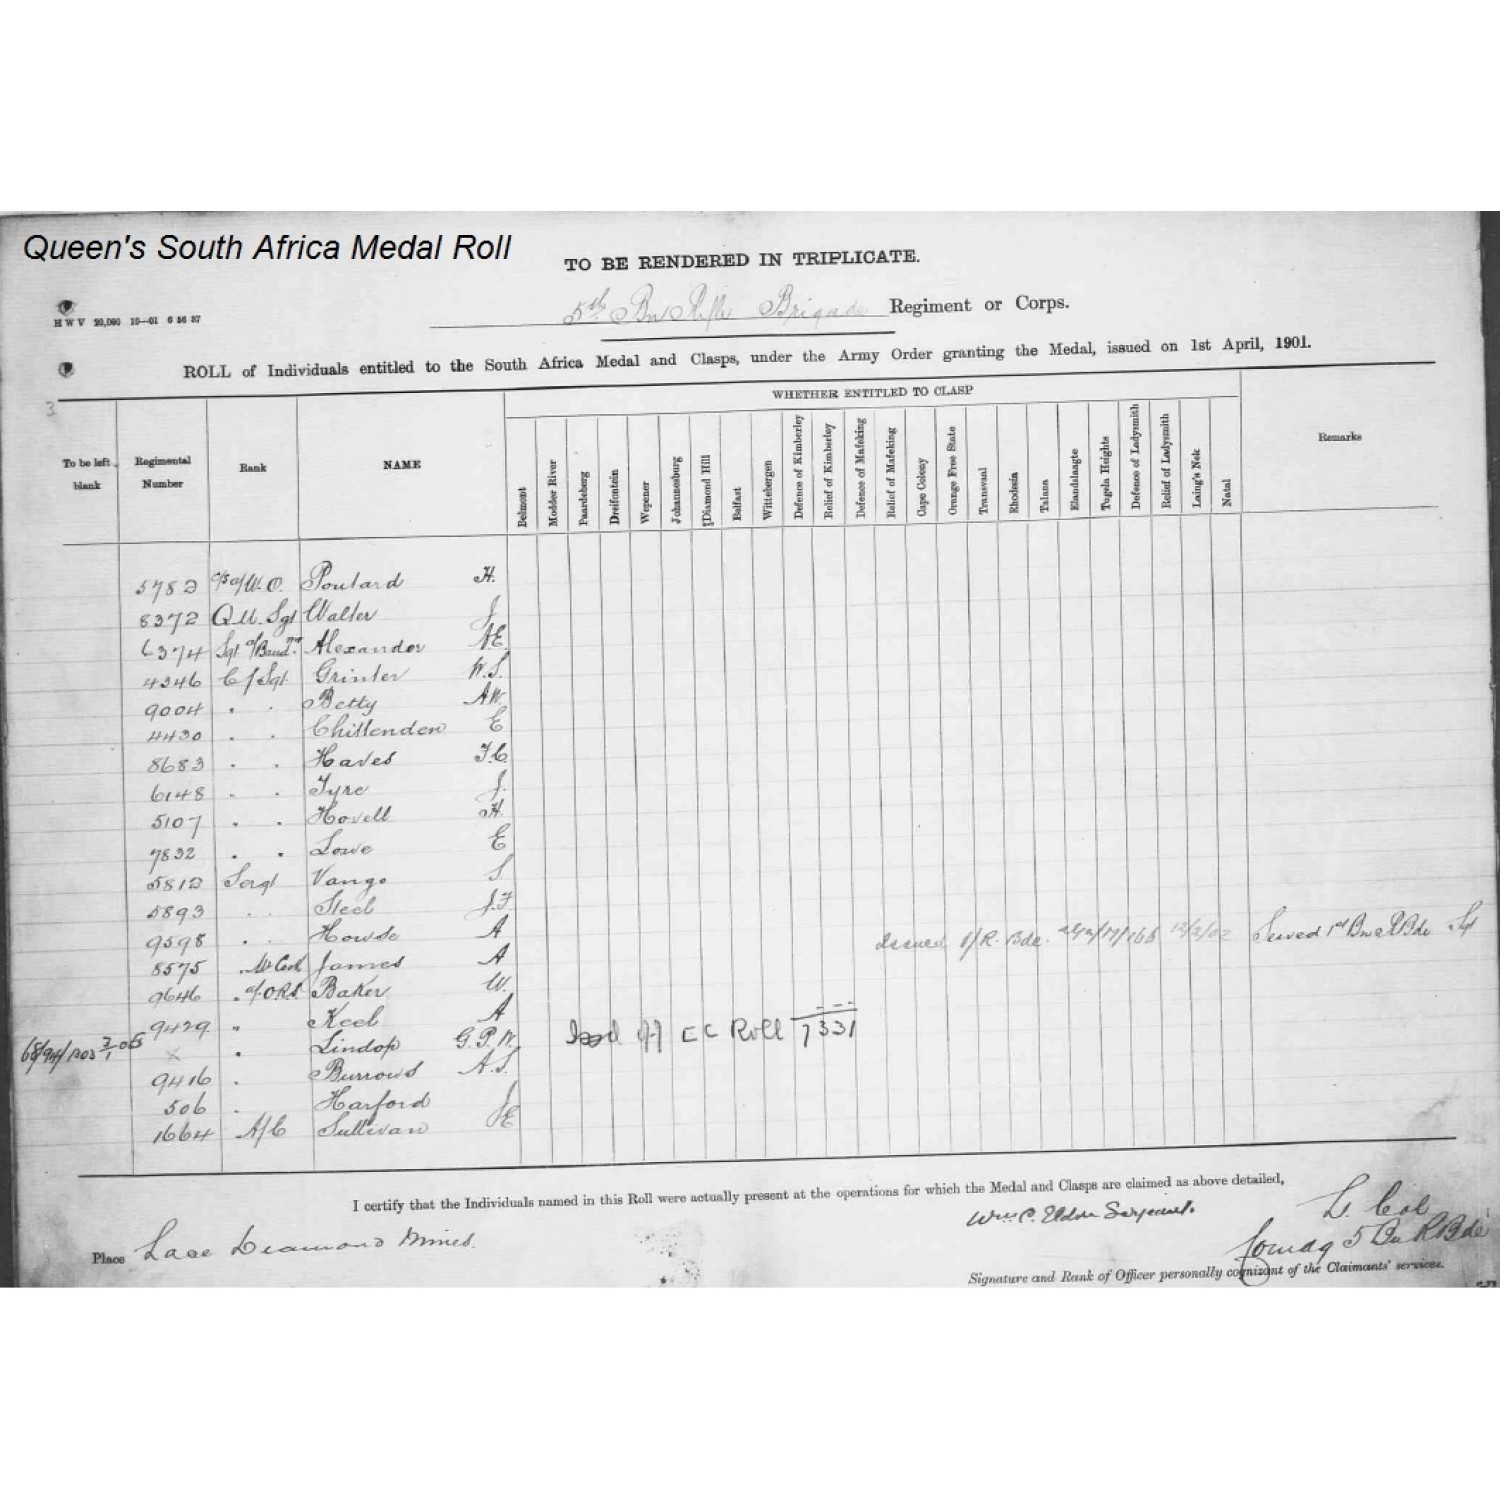 Queen's South Africa Medal Roll
TO BE RENDERED IN TRIPLICATE.
H W V 20,000 10—01 6 56 37
5th Bn Rifle Brigade Regiment or Corps.
ROLL of Individuals entitled to the South Africa Medal and Clasps, under the Army Order granting the Medal, issued on 1st April, 1901.
3
WHETHER ENTITLED TO CLASP
To be left blank Regimental Number Rank NAME Belmont Modder River Paardeberg Dreifontein Wepener Johannesburg Diamond Hill Belfast Wittebergen Defence of Kimberley Relief of Kimberley Defence of Mafeking Relief of Mafeking Cape Colony Orange Free State Transvaal Rhodesia Talana Elandslaagte Tugela Heights Defence of Ladysmith Relief of Ladysmith Laing's Nek Natal Remarks
5782 W.O. Poulard H.
8372 Q.M. Sgt Walter J
6374 Sgt Alexander A.E.
4346 C/Sgt Grinter W.S.
9004 . . Betty A.W.
4430 . . Chittenden E
8683 . . Haves F.C.
6148 . . Tyre J.
5107 . . Hovell H.
7832 . . Lowe E
5812 Sergt Vango S.
5893 . . Steel J.F
9598 . . Howse A Issued 1/R. Bde. 12/2/02 Served 1st Bn R Bde Sgt
8575 . James A
9646 . a/O.R.S. Baker W.
9429 " Keel A
. Lindop G.P.W. Issd off E C Roll 7331
9416 . Burrows A.S.
506 . Harford J
1664 A/C Sullivan E
I certify that the Individuals named in this Roll were actually present at the operations for which the Medal and Clasps are claimed as above detailed,
Wm C. Eldon Serjeant. Lt. Col
Place Lace Diamond Mines. Comdg 5 Bn R Bde
Signature and Rank of Officer personally cognizant of the Claimants' services.